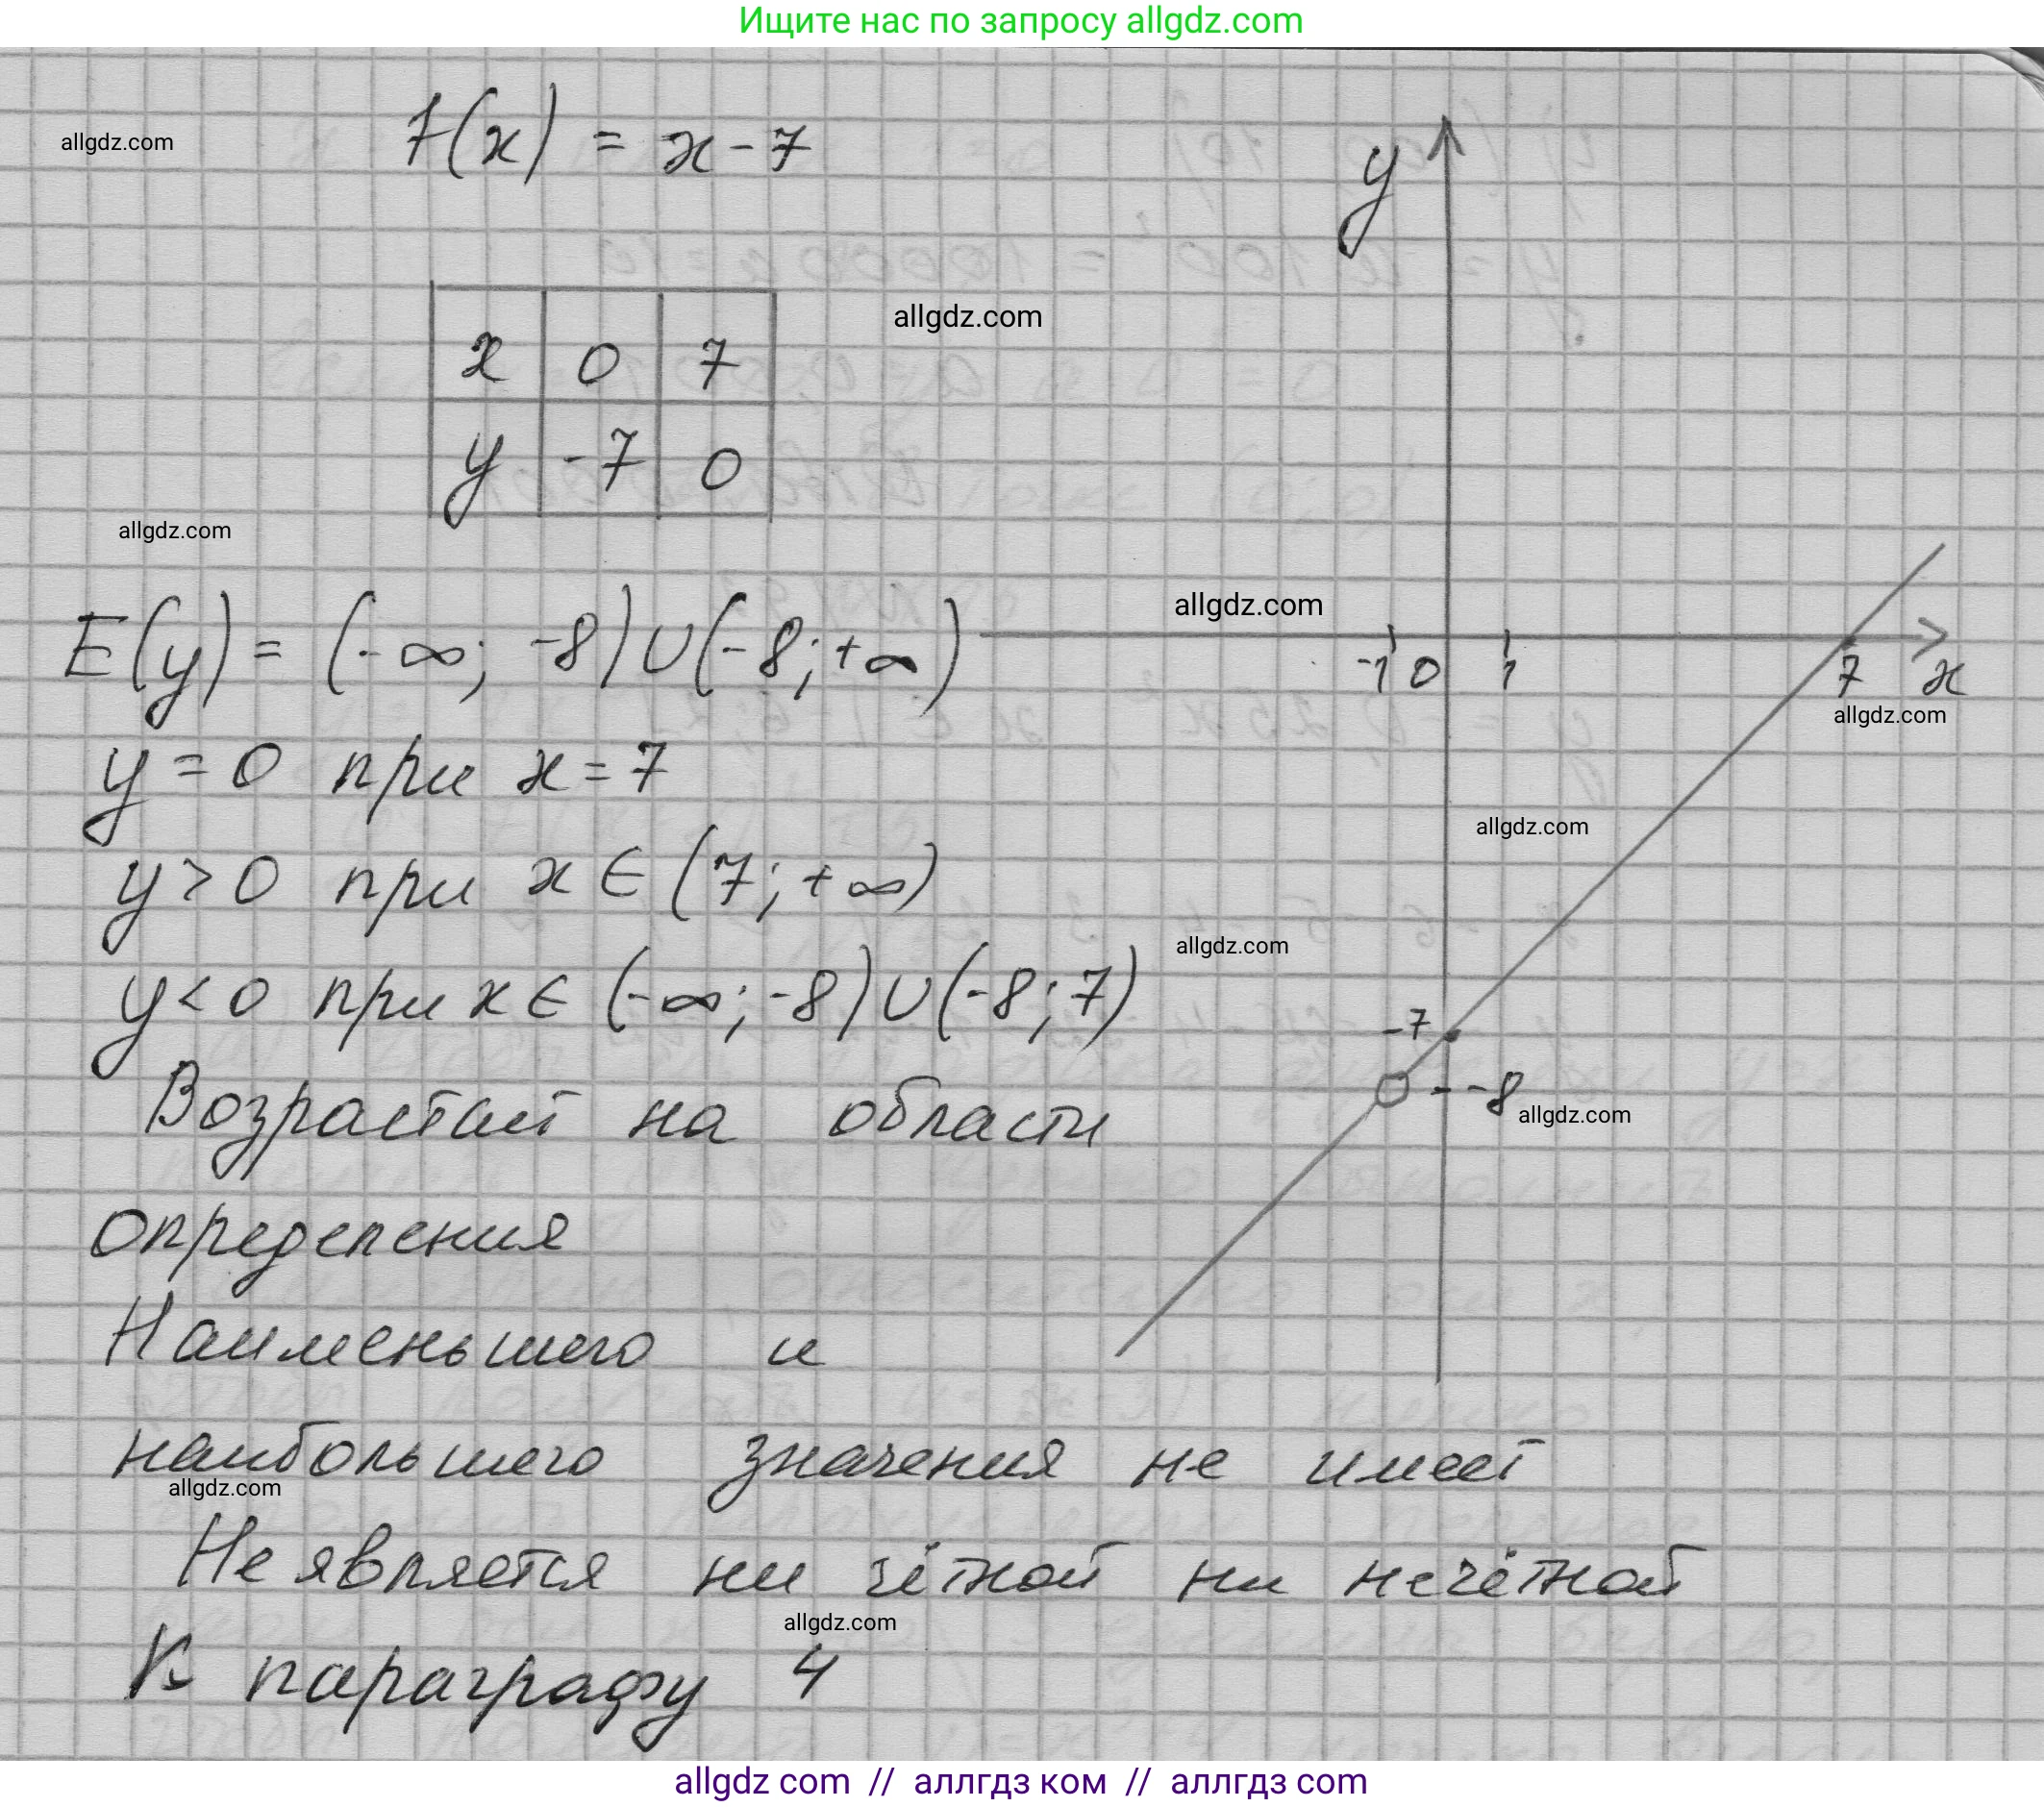 Ищите нас по запросу allgdz.com
allgdz.com
f(x) = x - 7
allgdz.com
x 0 7
y -7 0
allgdz.com
y
E(y) = (-∞; -8) ∪ (-8; +∞)
allgdz.com
-1 0 1 7 x
allgdz.com
y = 0 при x = 7
allgdz.com
y > 0 при x ∈ (7; +∞)
allgdz.com
y < 0 при x ∈ (-∞; -8) ∪ (-8; 7)
-7
-8
allgdz.com
Возрастает на области
определения
Наименьшего и
наибольшего значения не имеет
allgdz.com
Не является ни чётной ни нечётной
allgdz.com
К параграфу 4
allgdz com // аллгдз ком // аллгдз com